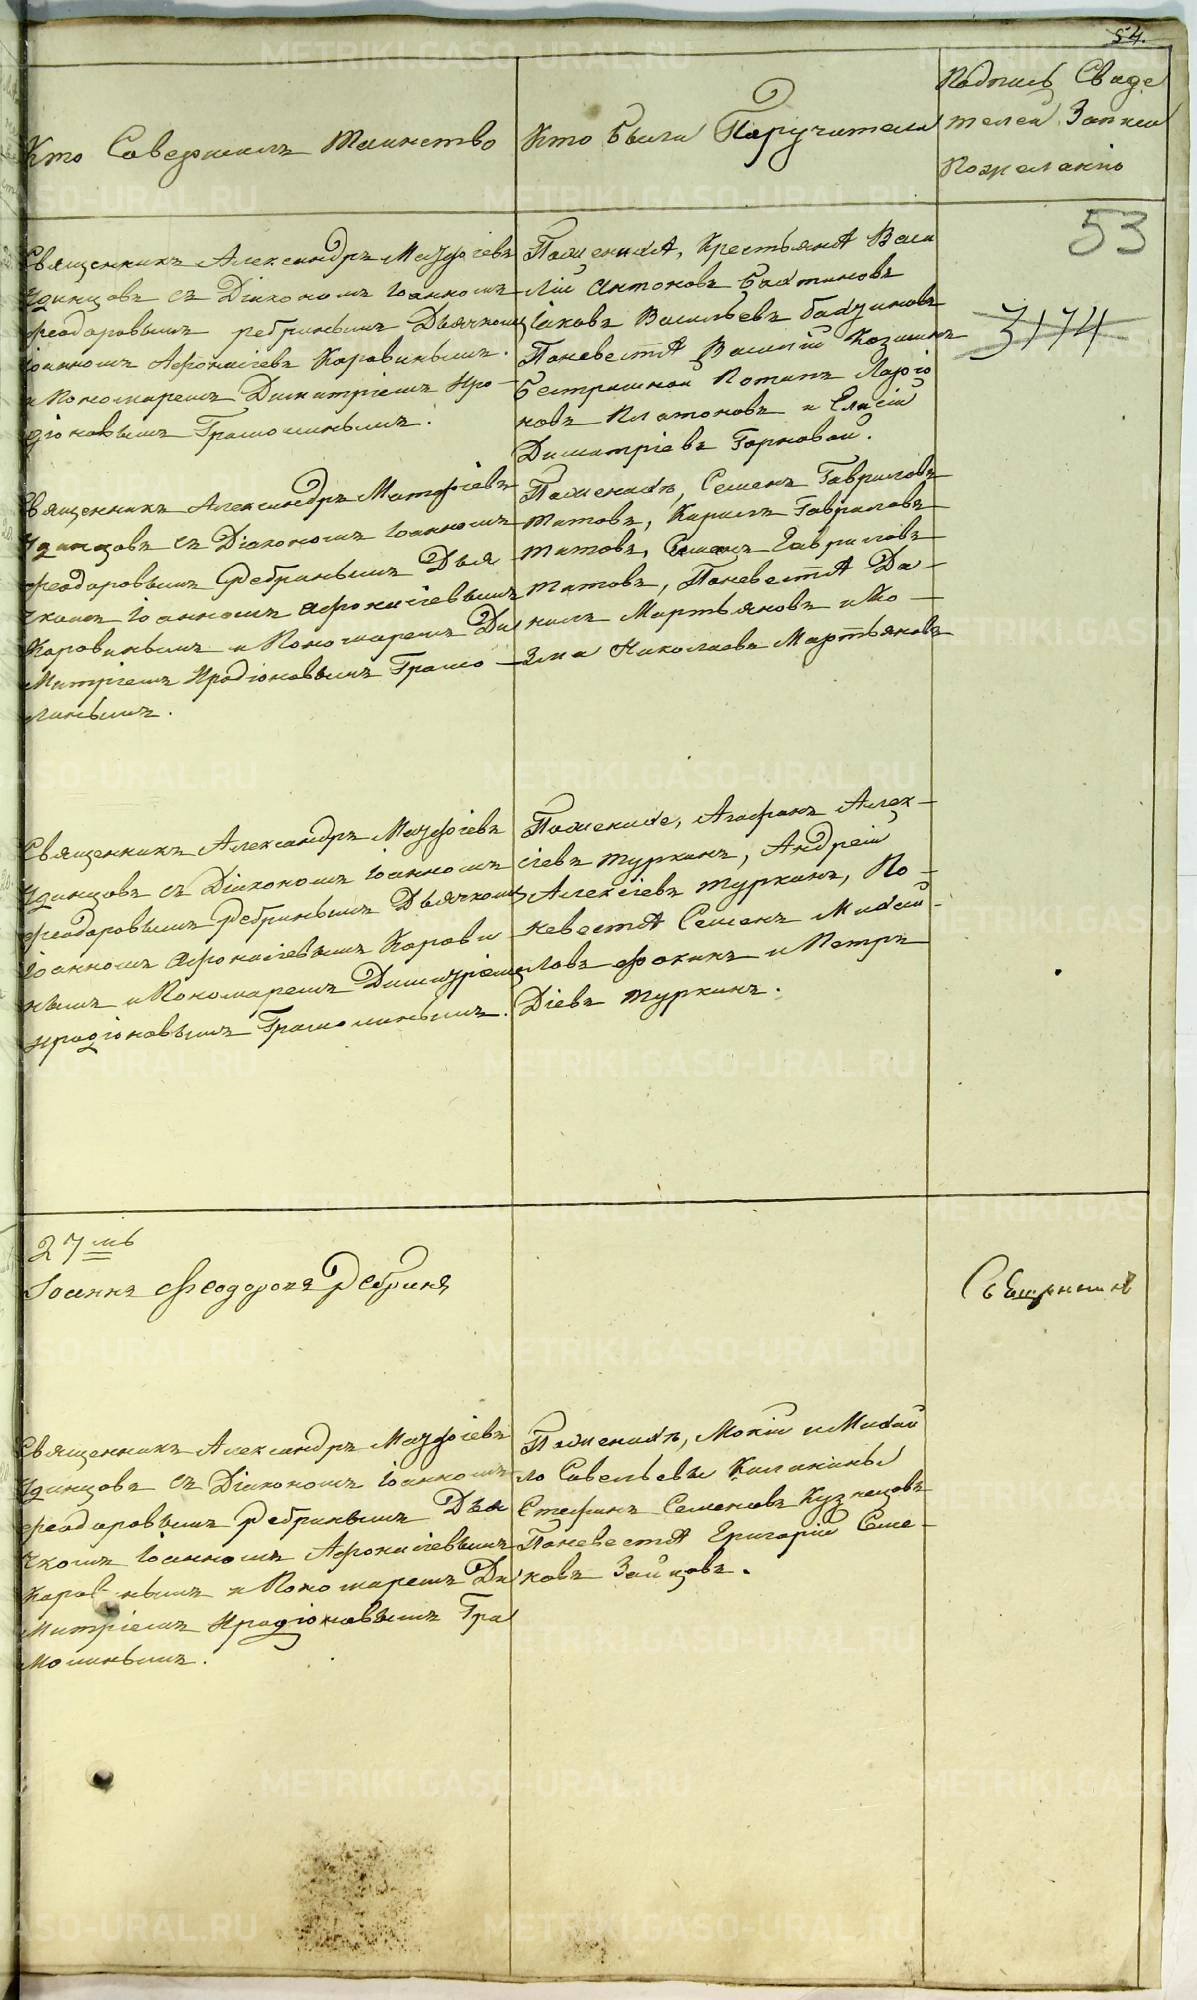 54.
Кто Совершилъ Таинство
Кто были Поручители
Подпись Свиде
телей Записи
Пожеланію
53
3174
Священникъ Александръ Матфіевъ
Удинцовъ съ Діакономъ Іоанномъ
Феодоровымъ Ребринымъ Дьячкомъ
Іоанномъ Афонасіевъ Коровинымъ.
и Пономаремъ Димитріемъ Иро-
діоновымъ Грамолинымъ.
Поженихѣ, Крестьянѣ Васи
лій Антоновъ
Іаковъ Васильевъ
Поневестѣ Василій
Потапъ Ларіо
новъ Платоновъ и Елисій
Димитріевъ Горновой.
Священникъ Александръ Матфіевъ
Удинцовъ съ Діакономъ Іоанномъ
Феодоровымъ Ребринымъ Дья
чкомъ Іоанномъ Афонасіевымъ
Коровинымъ и Пономаремъ Ди
митріемъ Иродіоновымъ Грамо-
линымъ.
Поженихѣ, Семенъ Гавриловъ
Титовъ, Кирилъ Гавриловъ
Титовъ, Семенъ Гавриловъ
Титовъ, Поневестѣ Да-
нилъ Мартьяновъ и Ко-
зма Николаевъ Мартьяновъ
Священникъ Александръ Матфіевъ
Удинцовъ съ Діакономъ Іоанномъ
Феодоровымъ Ребринымъ Дьячкомъ
Іоанномъ Афонасіевымъ Корови
нымъ и Пономаремъ Димитріемъ
Иродіоновымъ Грамолинымъ.
Поженихе, Агафонъ Алек-
сіевъ Туркинъ, Андрей
Алексіевъ Туркинъ, По-
невестѣ Семенъ Михай-
ловъ Фокинъ и Петръ
Діевъ Туркинъ.
27 мъ
Іоаннъ Феодоровъ Ребринъ
Священникъ
Священникъ Александръ Матфіевъ
Удинцовъ съ Діакономъ Іоанномъ
Феодоровымъ Ребринымъ Дья
чкомъ Іоанномъ Афонасіевымъ
Коровинымъ и Пономаремъ Ди
митріемъ Иродіоновымъ Гра
молинымъ.
Поженихѣ, Мокій и Михай
ло Савельевы Калинины
Стефанъ Семеновъ Кузнецовъ
Поневестѣ Григорій Семе-
новъ Зайцовъ.
METRIKI.GASO-URAL.RU